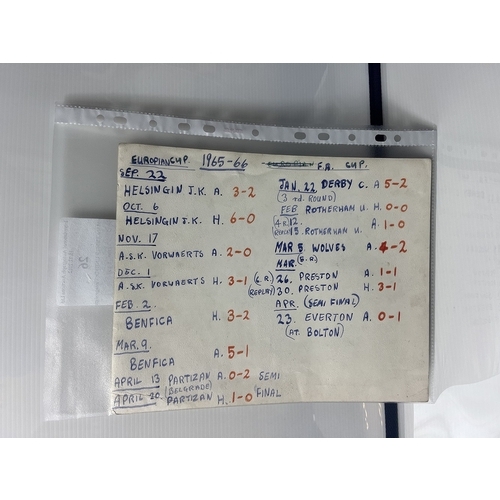 EUROPIANCUP 1965-66
SEP. 22
HELSINGIN J.K. A. 3-2
OCT. 6
HELSINGIN J.K. H. 6-0
NOV. 17
A.S.K. VORWAERTS A. 2-0
DEC. 1
A.S.K. VORWAERTS H. 3-1
FEB. 2.
BENFICA H. 3-2
MAR. 9.
BENFICA A. 5-1
APRIL 13 PARTIZAN A. 0-2 SEMI
(BELGRADE)
APRIL 20. PARTIZAN H. 1-0 FINAL
F.A. CUP.
JAN. 22 DERBY C. A 5-2
(3rd. ROUND)
FEB ROTHERHAM U. H. 0-0
(4 R) 12.
(REPLAY) 15. ROTHERHAM U. A. 1-0
MAR 5. WOLVES A. 4-2
MAR. (5. R.)
(6. R.) 26. PRESTON A. 1-1
REPLAY) 30. PRESTON H. 3-1
APR. (SEMI FINAL)
23. EVERTON A. 0-1
(AT. BOLTON)